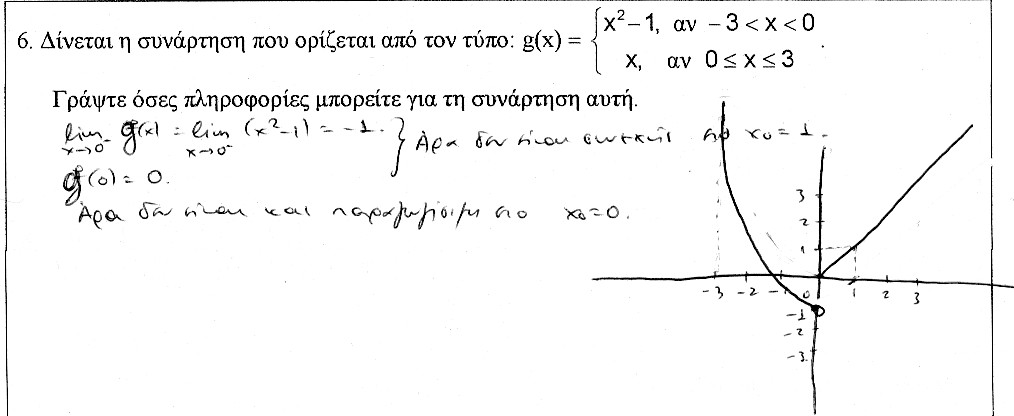 6. Δίνεται η συνάρτηση που ορίζεται από τον τύπο: g(x) = { x² − 1, αν −3 < x < 0
x, αν 0 ≤ x ≤ 3 .
Γράψτε όσες πληροφορίες μπορείτε για τη συνάρτηση αυτή.
lim x→0⁻ g(x) = lim x→0⁻ (x²−1) = −1. } Άρα δεν είναι συνεχής στο x₀ = 1.
g(0) = 0.
Άρα δεν είναι και παραγωγίσιμη στο x₀=0.
3
2
1
-3 -2 -1 0 1 2 3
-1
-2
-3